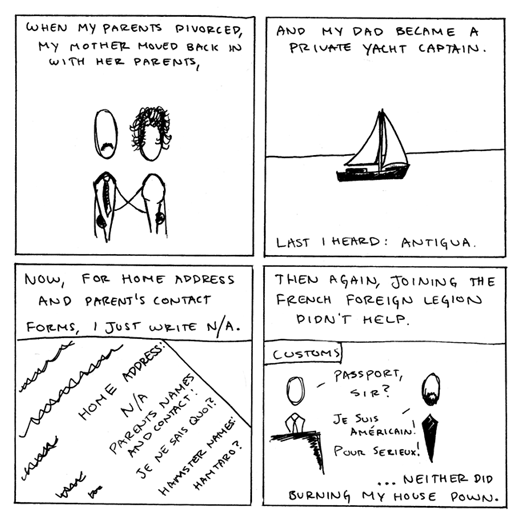 WHEN MY PARENTS DIVORCED,
MY MOTHER MOVED BACK IN
WITH HER PARENTS,
AND MY DAD BECAME A
PRIVATE YACHT CAPTAIN.
LAST I HEARD: ANTIGUA.
NOW, FOR HOME ADDRESS
AND PARENT'S CONTACT
FORMS, I JUST WRITE N/A.
HOME ADDRESS:
N/A
PARENTS NAMES
AND CONTACT:
JE NE SAIS QUOI?
HAMSTER NAMES:
HAMTARO?
THEN AGAIN, JOINING THE
FRENCH FOREIGN LEGION
DIDN'T HELP.
CUSTOMS
PASSPORT,
SIR?
JE SUIS
AMÉRICAIN!
POUR SERIEUX!
... NEITHER DID
BURNING MY HOUSE DOWN.